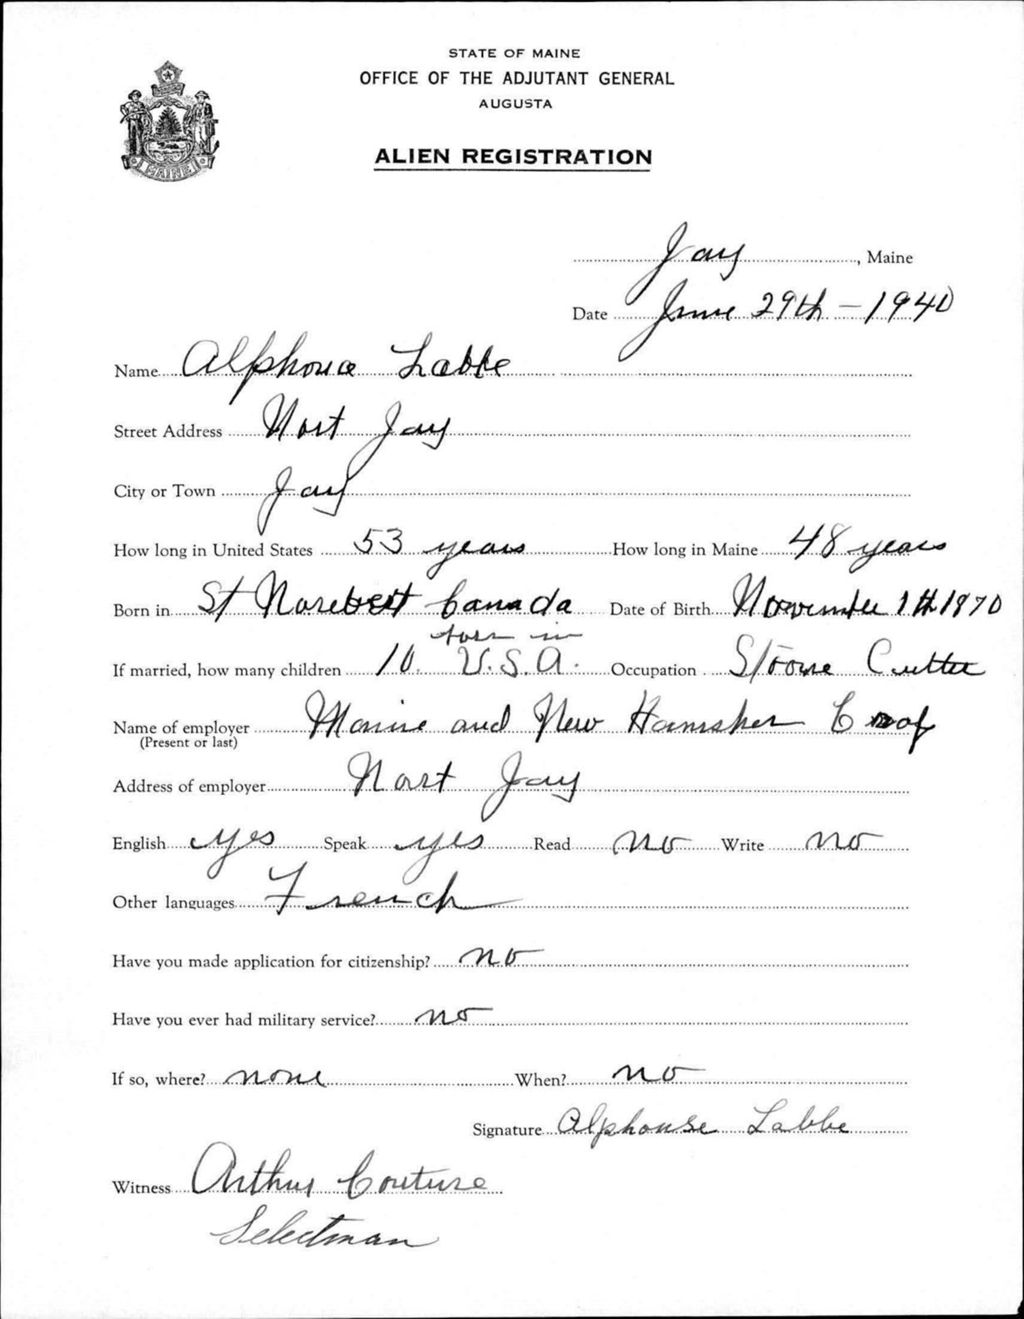 STATE OF MAINE
OFFICE OF THE ADJUTANT GENERAL
AUGUSTA
ALIEN REGISTRATION
MAINE
Jay, Maine
Date June 29th - 1940
Name Alphonse Labbe
Street Address Nort Jay
City or Town Jay
How long in United States 53 years How long in Maine 48 years
Born in St Norebert Canada Date of Birth November 1th 1870
born in
If married, how many children 10. U.S.A. Occupation Stoone Cutter
Name of employer Maine and New Hamsher
(Present or last)
Address of employer Nort Jay
English yes Speak yes Read no Write no
Other languages French
Have you made application for citizenship? no
Have you ever had military service? no
If so, where? none When? no
Signature Alphonse Labbe
Witness Arthur Couture
Selectman